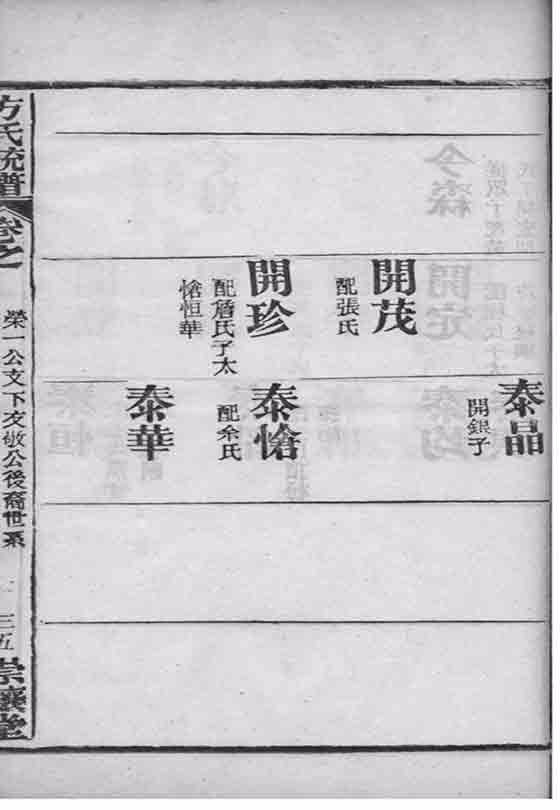 開茂
配張氏
開珍
配詹氏子太
愴恒華
泰晶
開銀子
泰愴
配余氏
泰華
方氏統譜
卷之一
榮一公文下文敏公後裔世系
三五
崇讓堂